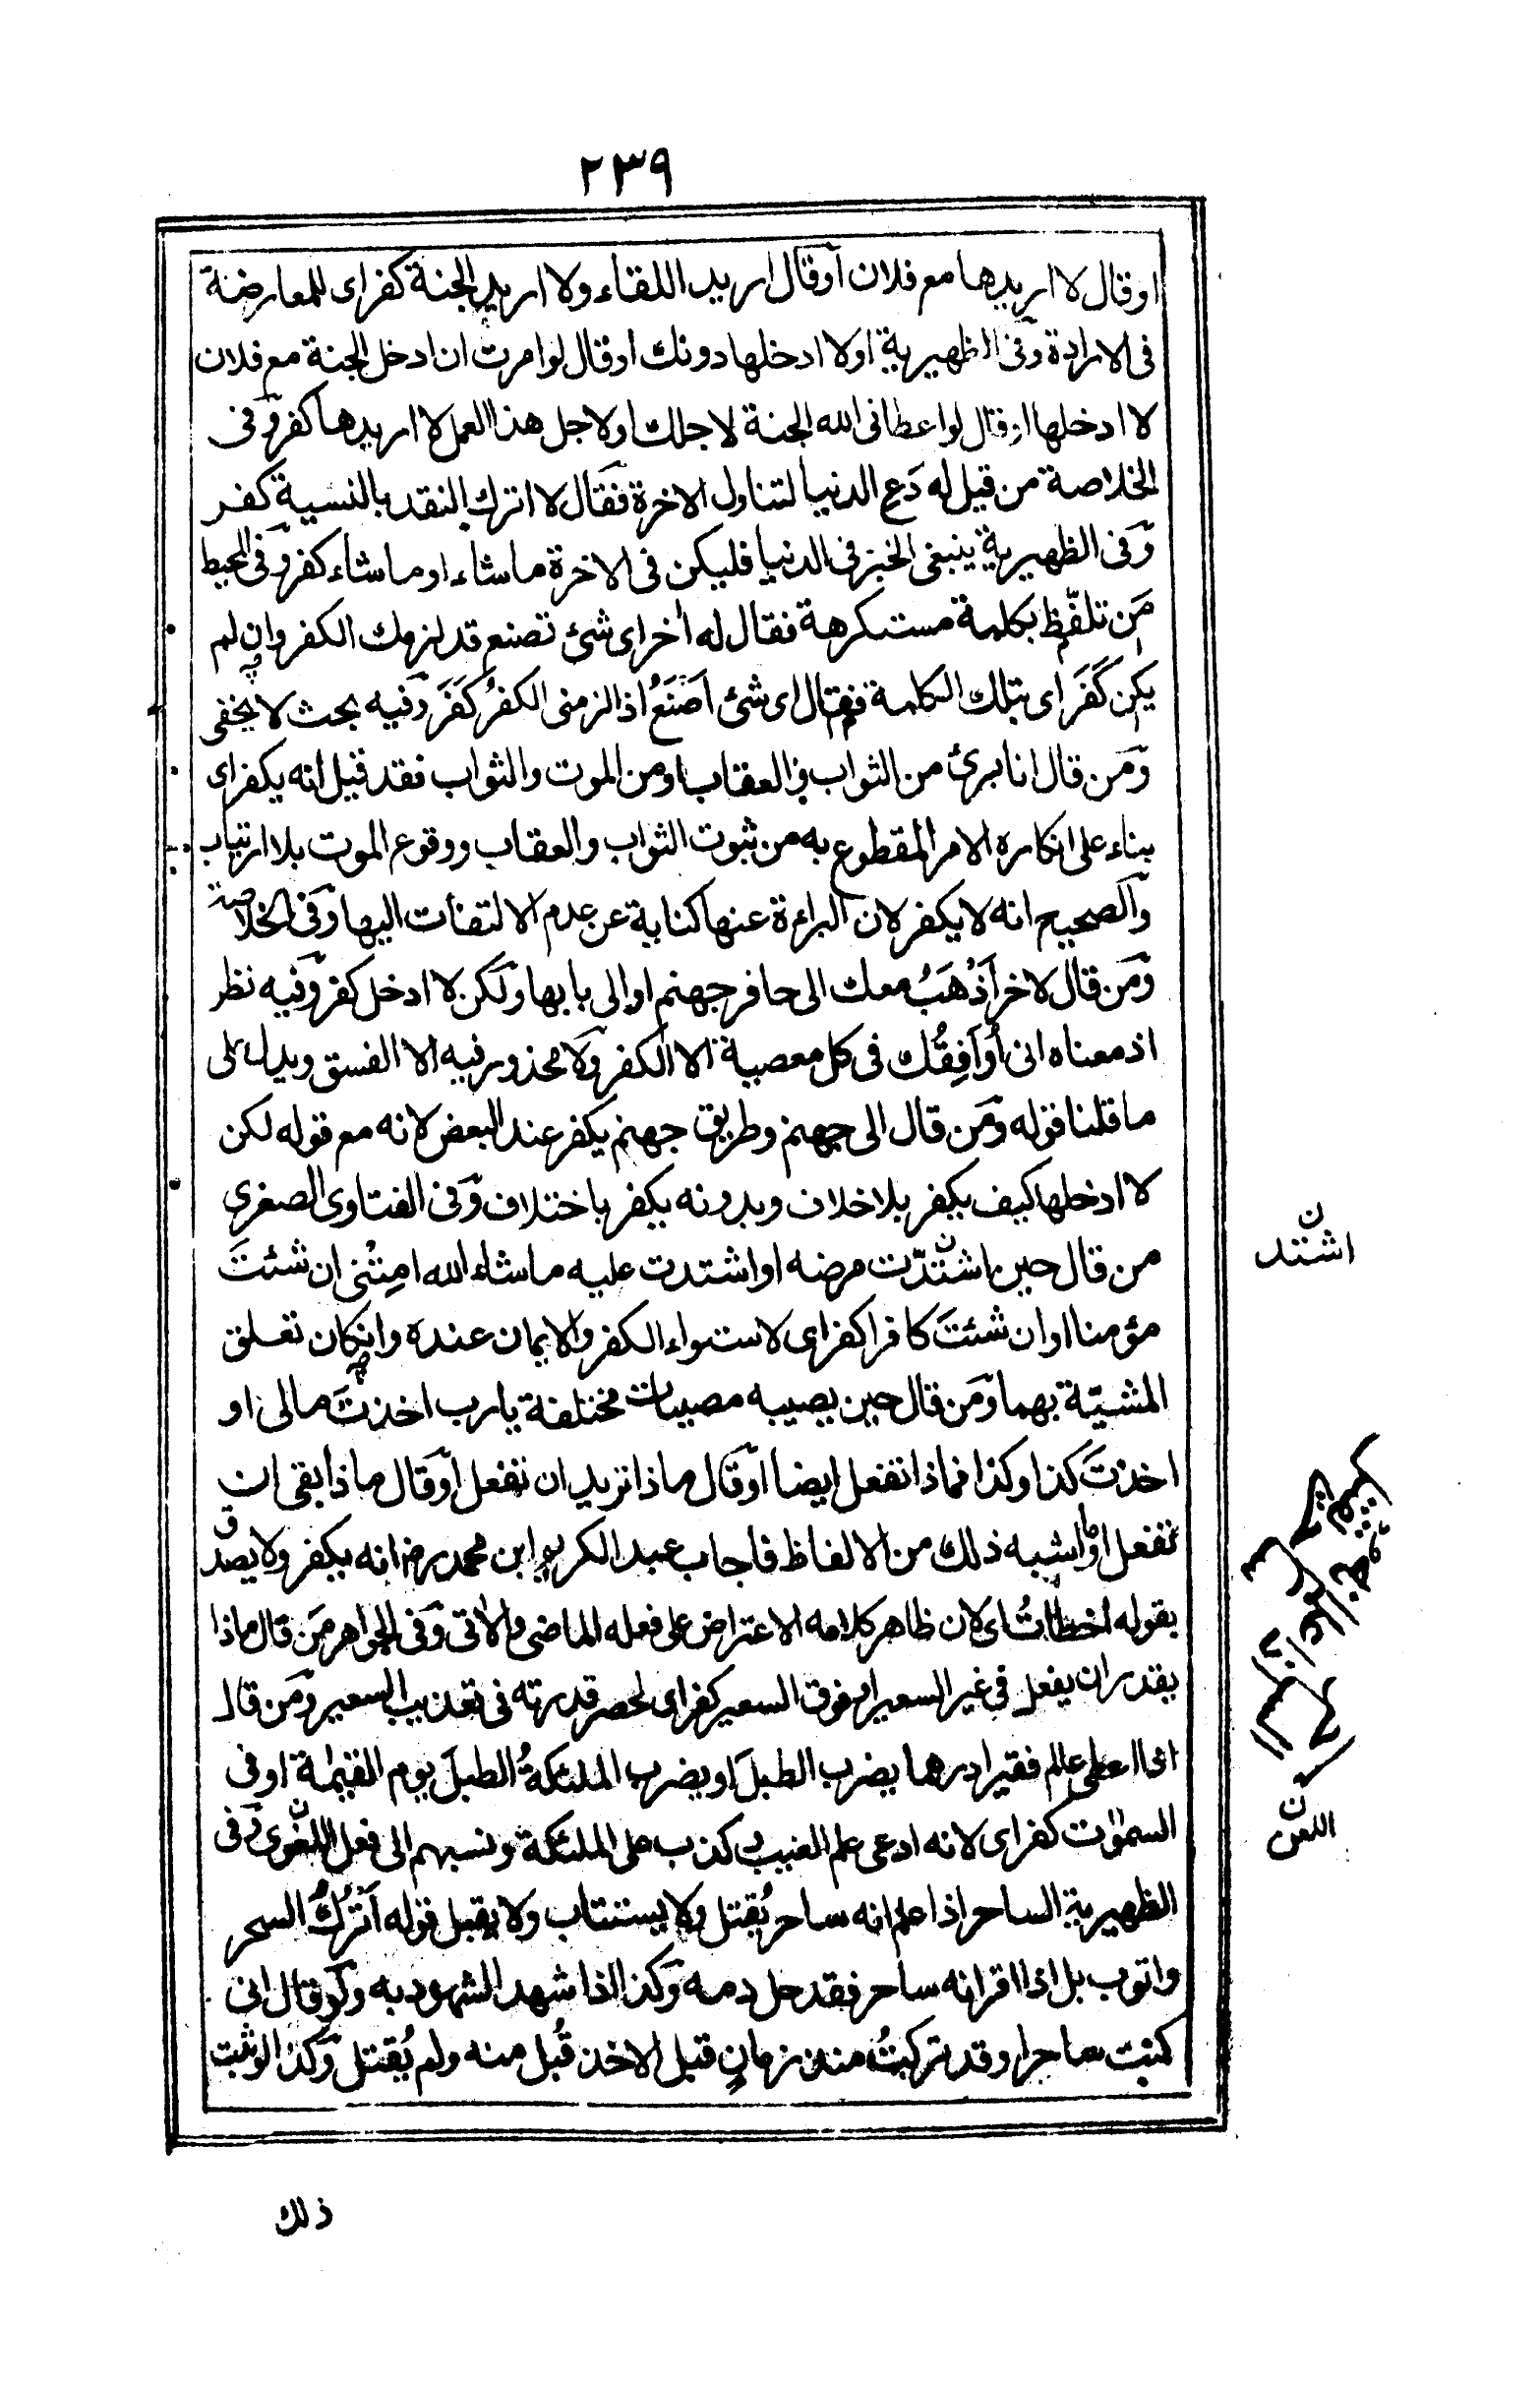 ٢٣٩
او قال لا اريدها مع فلان او قال اريد اللقاء ولا اريد الجنة كفر اى للمعارضة
فى الارادة وفى الظهيرية او لا ادخلها دونك او قال لو امرت ان ادخل الجنة مع فلان
لا ادخلها او قال لو اعطانى الله الجنة لاجلك او لاجل هذا العمل لا اريدها كفر وفى
الخلاصة من قيل له دَع الدنيا لتناول الاخرة فقال لا اترك النقد بالنسية كفر
وفى الظهيرية ينبغى الخبز فى الدنيا فليكن فى الاخرة ما شاء او ما شاء كفر وفى المحيط
مَن تلفّظ بكلمة مستكرهة فقال له اخر اى شئ تصنع قد لزمك الكفر وان لم
يكن كَفَرَ اى بتلك الكلمة فقال اى شئ اَصْنَعُ اذا لزمنى الكفرُ كَفَرَ وفيه بحث لا يخفى
ومَن قال انا برئ من الثواب والعقاب او من الموت والثواب فقد قيل انه يكفر اى
بناء على انكاره الامر المقطوع به من ثبوت الثواب والعقاب ووقوع الموت بلا ارتياب
والصحيح انه لا يكفر لان البراءة عنها كناية عن عدم الالتفات اليها وفى الخلاصة
ومَن قال لاخر اَذْهَبُ معك الى حافر جهنم او الى بابها ولكن لا ادخل كفر وفيه نظر
اذ معناه انى اُوَافِقُك فى كل معصية الا الكفر ولا محذور فيه الا الفسق ويدل على
ما قلنا قوله ومَن قال الى جهنم وطريق جهنم يكفر عند البعض لانه مع قوله لكن
لا ادخلها كيف يكفر بلا خلاف وبدونه يكفر باختلاف وفى الفتاوى الصغرى
من قال حين اشتدّت مرضه او اشتدت عليه ما شاء الله امِتْنى ان شئتَ
مؤمنا او ان شئتَ كافرا كفر اى لاستواء الكفر والايمان عنده وان كان تعلق
المشيّة بهما ومَن قال حين يصيبه مصيبات مختلفة يا رب اخذتَ مالى او
اخذتَ كذا وكذا فماذا تفعل ايضا او قال ماذا تريد ان تفعل او قال ماذا بقى ان
تفعل او ما اشبه ذلك من الالفاظ فاجاب عبد الكريم ابن محمد رض انه يكفر ولا يصدق
بقوله اخطاتُ اى لان ظاهر كلامه الاعتراض على فعله الماضى والاتى وفى الجواهر مَن قال ماذا
يقدر ان يفعل فى غير السعير او فوق السعير كفر اى لحصر قدرته فى تعذيب السعير ومَن قال
اذا اعطى عالم فقيرا درهما يضرب الطبلَ او يضرب الملئكةُ الطبلَ يوم القيٰمة او فى
السمٰوات كفر اى لانه ادعى علم الغيب وكذب على الملئكة ونسبهم الى فعل اللغوى وفى
الظهيرية الساحر اذا علم انه ساحر يُقتل ولا يستتاب ولا يقبل قوله اَتْرُكُ السحر
واتوب بل اذا اقر انه ساحر فقد حل دمه وكذا اذا شهد الشهود به ولو قال انى
كنت ساحرا وقد تركتُ منذ زمان قبل الاخذ قُبل منه ولم يُقتل وكذا لو ثبت
ن
اشتد
ن
اللعن
ذلك